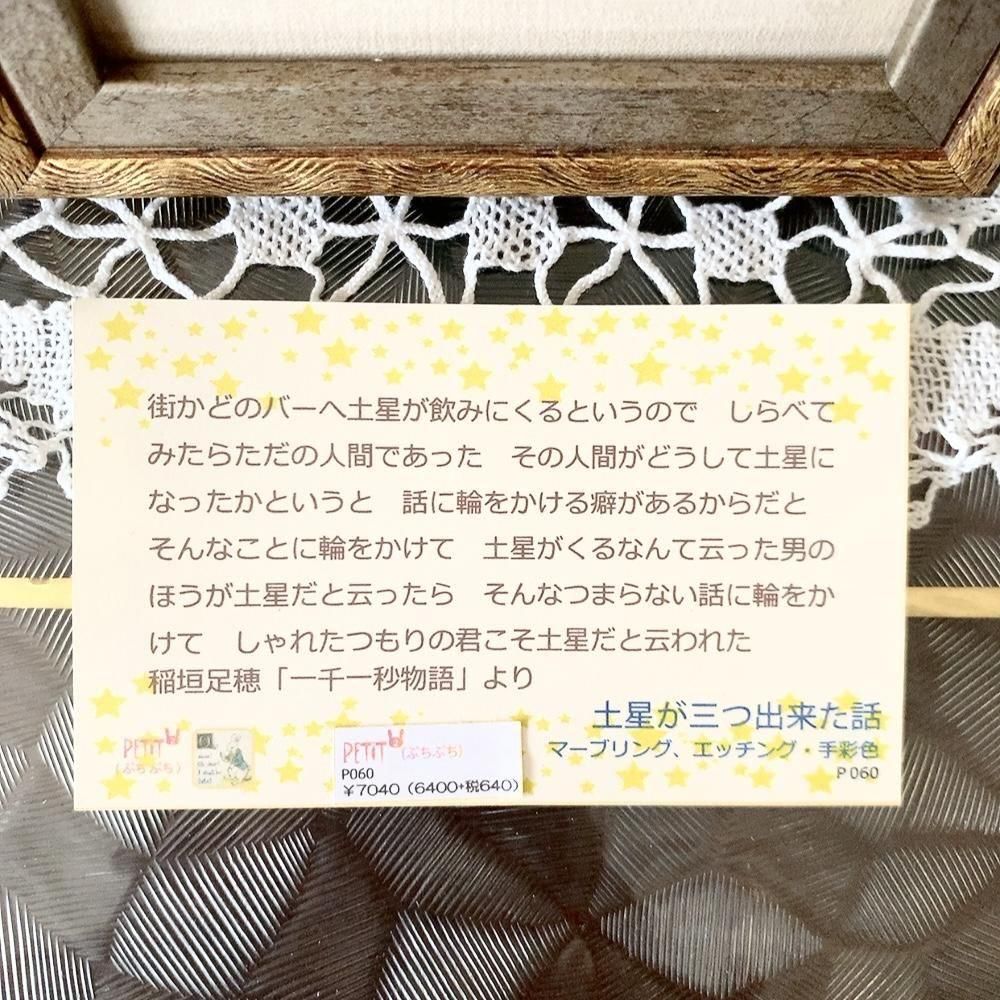 街かどのバーへ土星が飲みにくるというので　しらべて
みたらただの人間であった　その人間がどうして土星に
なったかというと　話に輪をかける癖があるからだと
そんなことに輪をかけて　土星がくるなんて云った男の
ほうが土星だと云ったら　そんなつまらない話に輪をか
けて　しゃれたつもりの君こそ土星だと云われた
稲垣足穂「一千一秒物語」より
土星が三つ出来た話
マーブリング、エッチング・手彩色
P060
PETIT
(ぷちぷち)
PETIT (ぷちぷち)
P060
¥7040 (6400+税640)